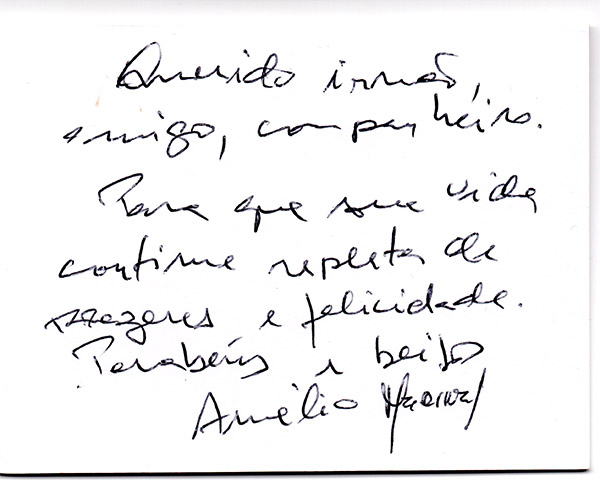 Querido irmão,
amigo, companheiro.
Para que sua vida
continue repleta de
prazeres e felicidade.
Parabéns e beijos
Amélio